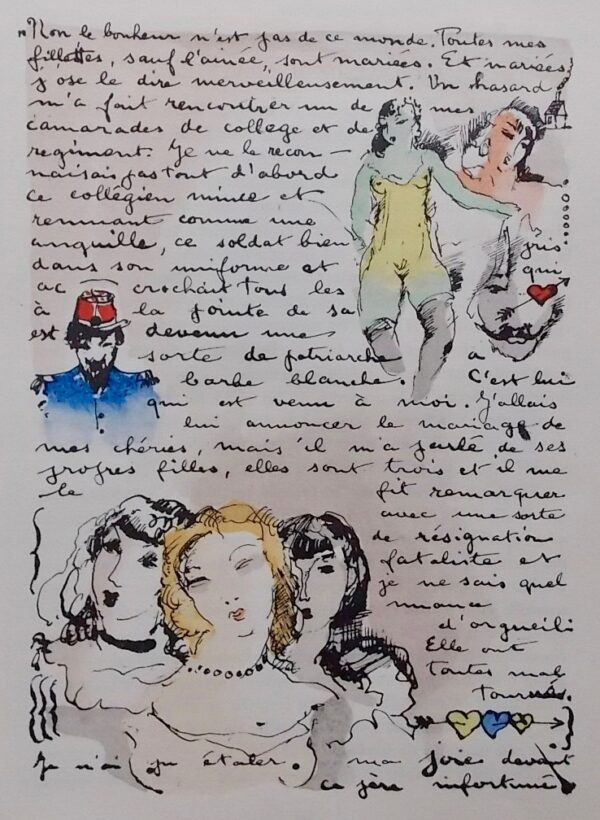 "Non le bonheur n'est pas de ce monde. Toutes mes
fillettes, sauf l'ainée, sont mariées. Et mariées
j'ose le dire merveilleusement. Un hasard
m'a fait rencontrer un de mes
camarades de collège et de
regiment. Je ne le recon-
naissais pas tout d'abord
ce collégien mince et
remuant comme une
anguille, ce soldat bien pris
dans son uniforme et qui
ac crochait tous les
à la pointe de sa
est devenu une
sorte de patriarche a
barbe blanche. C'est lui
qui est venu à moi. J'allais
lui annoncer le mariage de
mes chéries, mais il m'a parlé de ses
propres filles, elles sont trois et il me
le fit remarquer
avec une sorte
de résignation
fataliste et
je ne sais quel
nuance
d'orgueil:
Elle ont
toutes mal
tourné.
Je n'ai pu étaler. ma joie devant
ce père infortuné